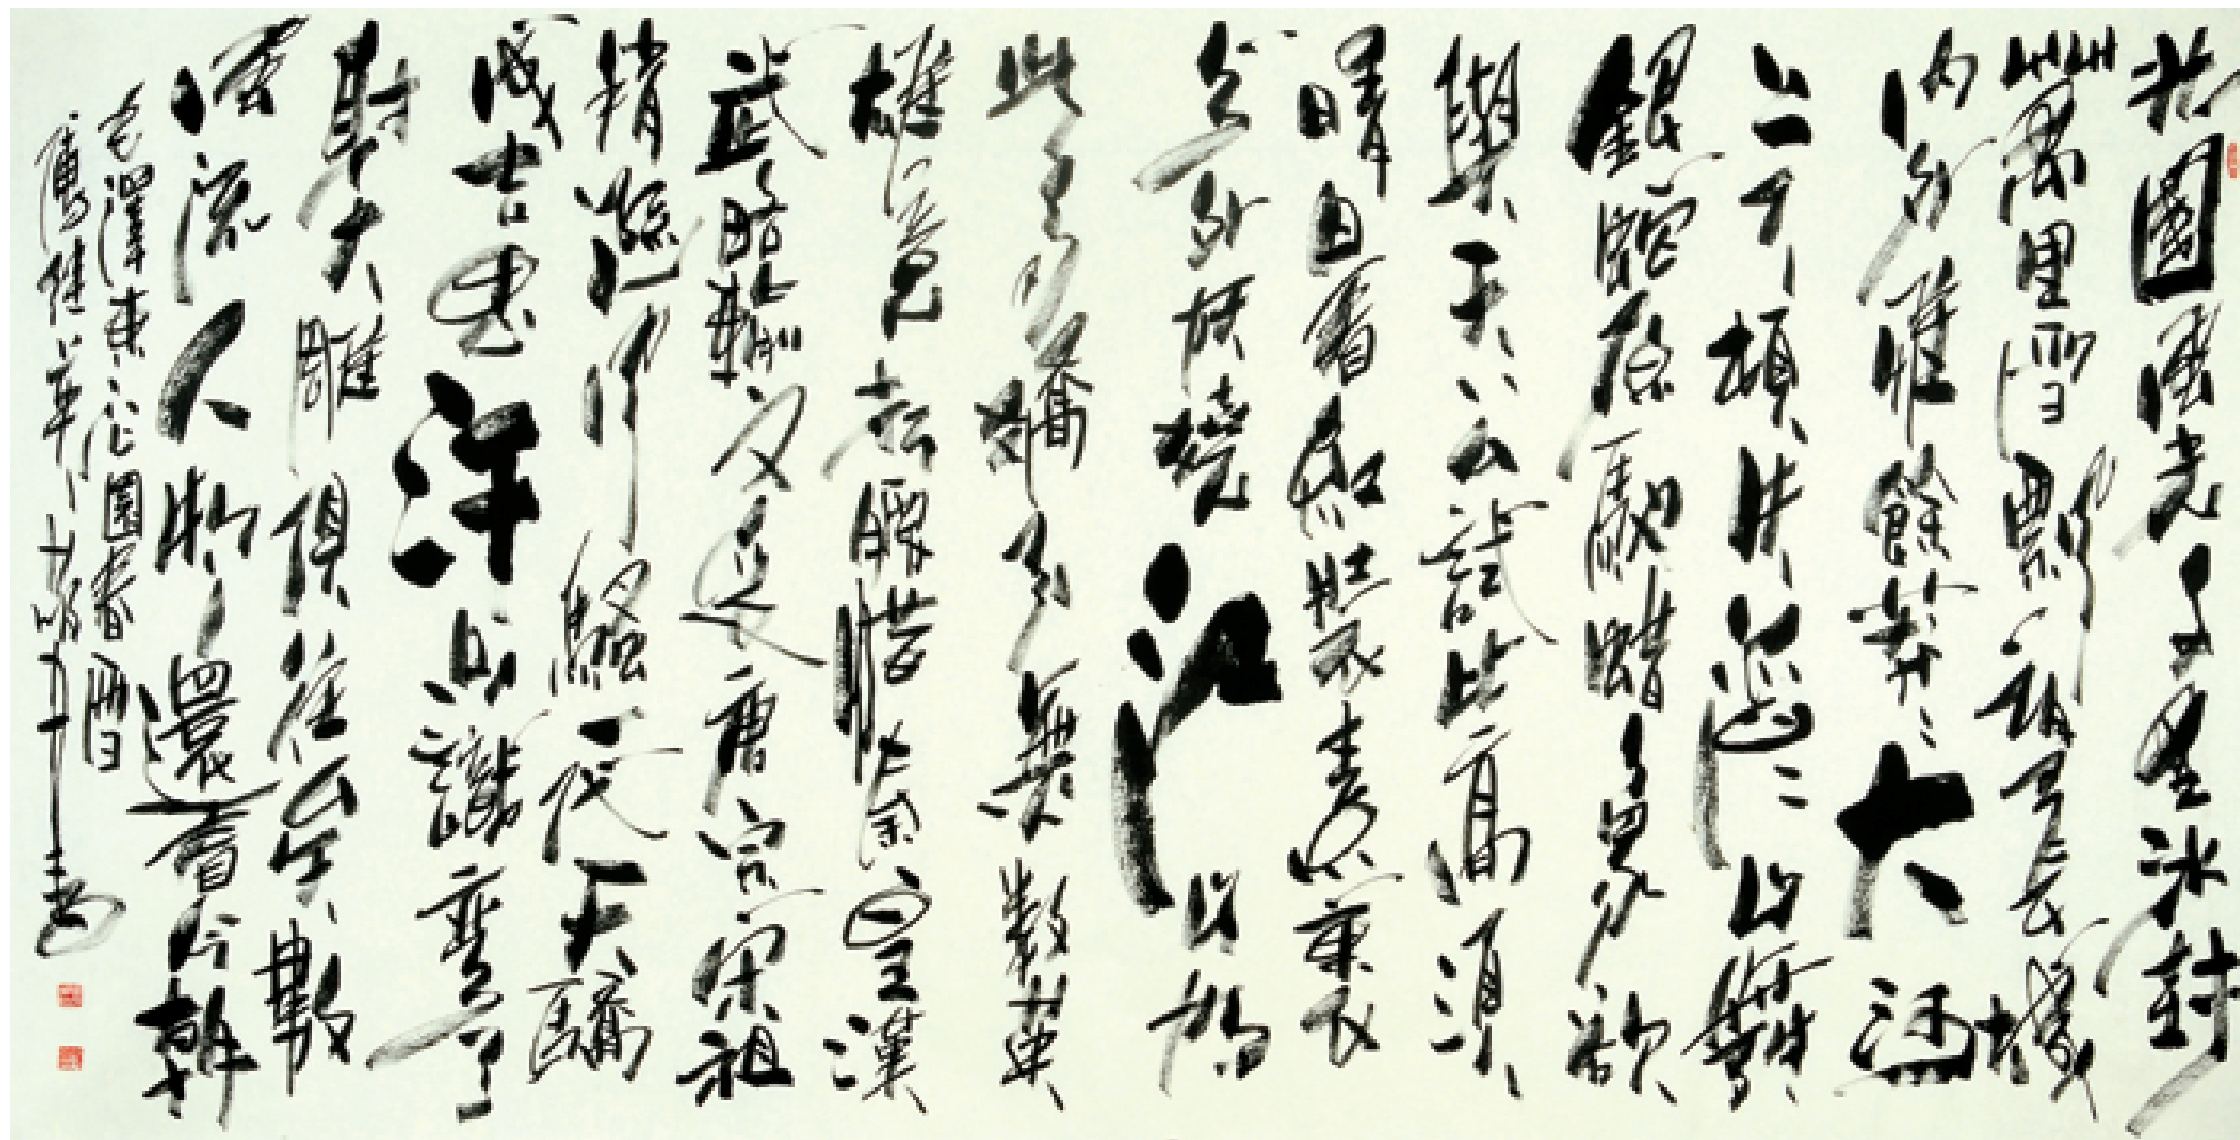 北國風光千里冰封
萬里雪飄望長城
內外惟餘莽莽大河
上下頓失滔滔山舞
銀蛇原馳蠟象欲
與天公試比高須
晴日看紅裝素裹
分外妖嬈江山如
此多嬌引無數英
雄競折腰惜秦皇漢
武略輸文采唐宗宋祖
稍遜風騷一代天驕
成吉思汗只識彎弓
射大雕俱往矣數
風流人物還看今朝
毛澤東詞沁園春雪